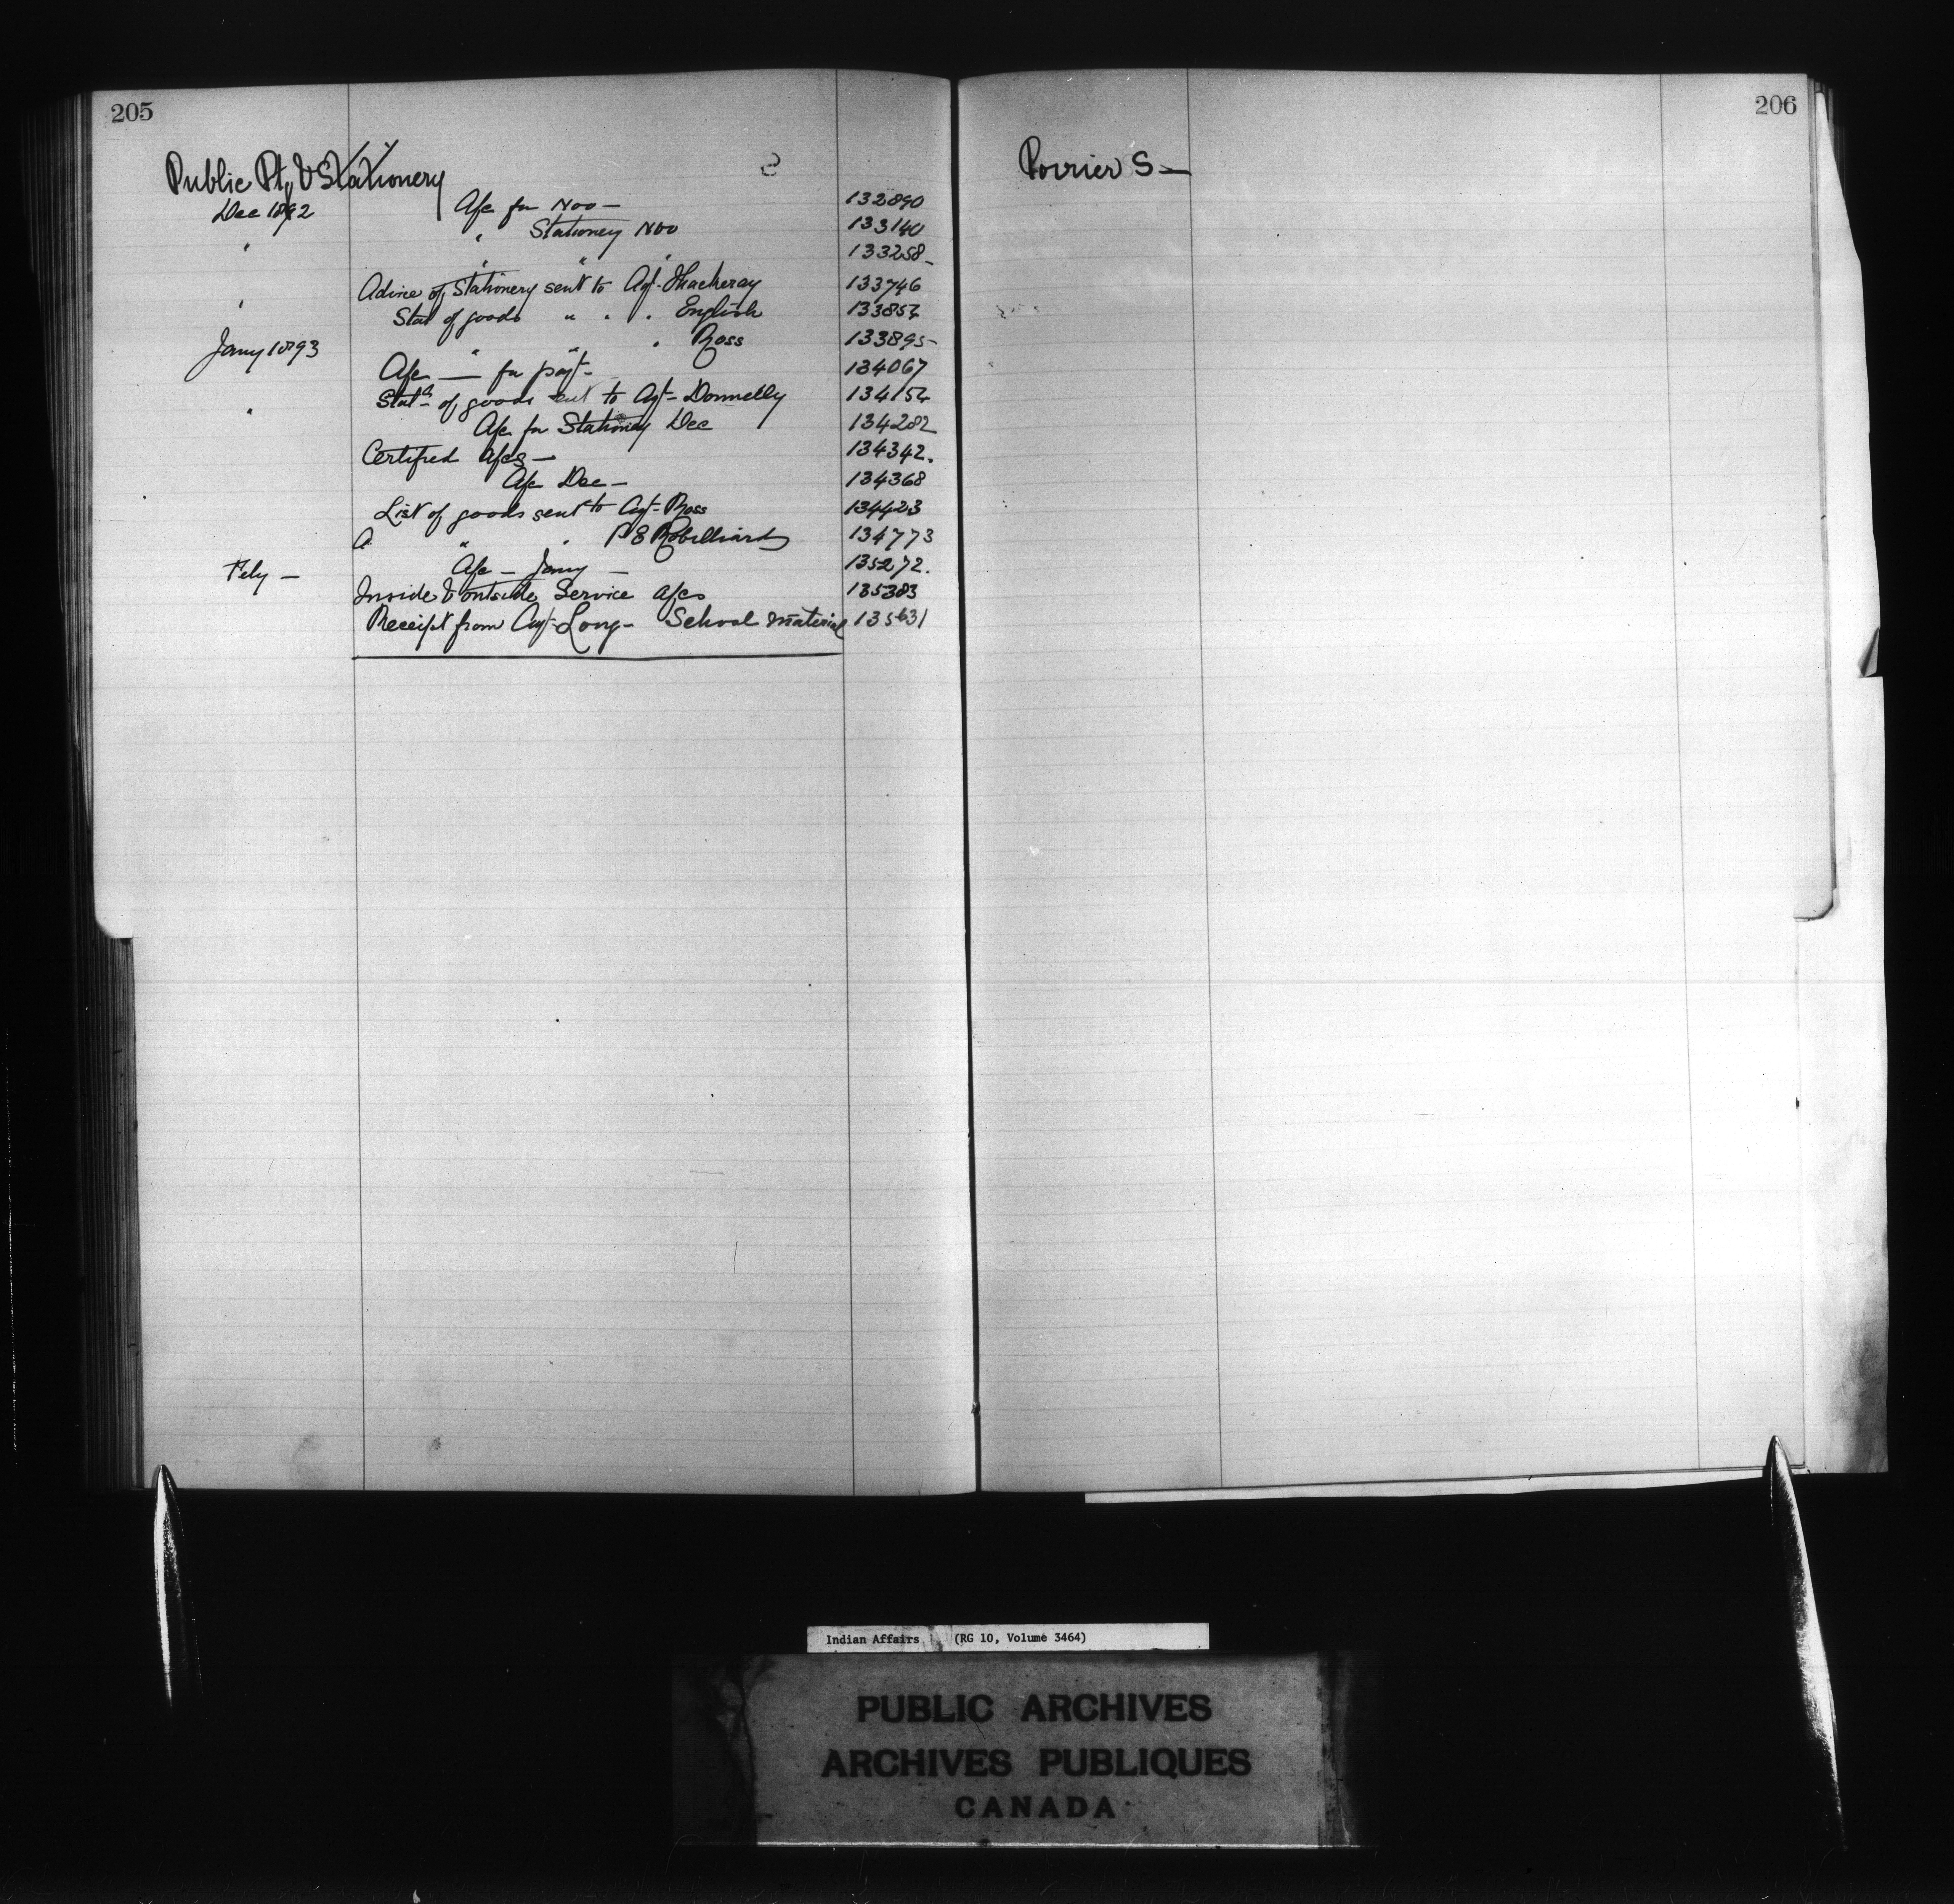 205
Public Ptg & Stationery
Dec 1892 A/c for Nov — 132890
" " Stationery Nov 133140
" " " 133258
" Advice of Stationery sent to Agt Thackeray 133746
Stat of goods " " " English 133854
Jany 1893 " " " Ross 133895
A/c — for payt 134067
" Statt of goods sent to Agt Donnelly 134154
A/c for Stationery Dec 134282
Certified A/cs — 134342.
A/c Dec — 134368
List of goods sent to Agt Ross 134423
" " P E Robilliard 134773
Feby — A/c — Jany — 135272.
Inside & outside Service a/cs 135383
Receipt from Agt Long — School material 135631
206
Poirier S —
Indian Affairs (RG 10, Volume 3464)
PUBLIC ARCHIVES
ARCHIVES PUBLIQUES
CANADA